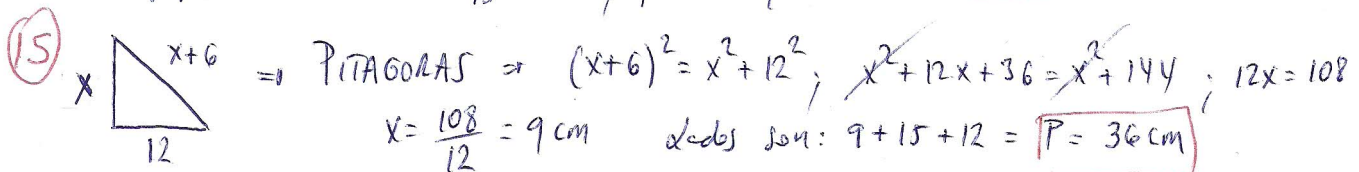 15 x x+6 12 ⇒ PITAGORAS ⇒ (x+6)² = x² + 12² ; x² + 12x + 36 = x² + 144 ; 12x = 108
x = 108/12 = 9 cm Lados son: 9 + 15 + 12 = P = 36 cm